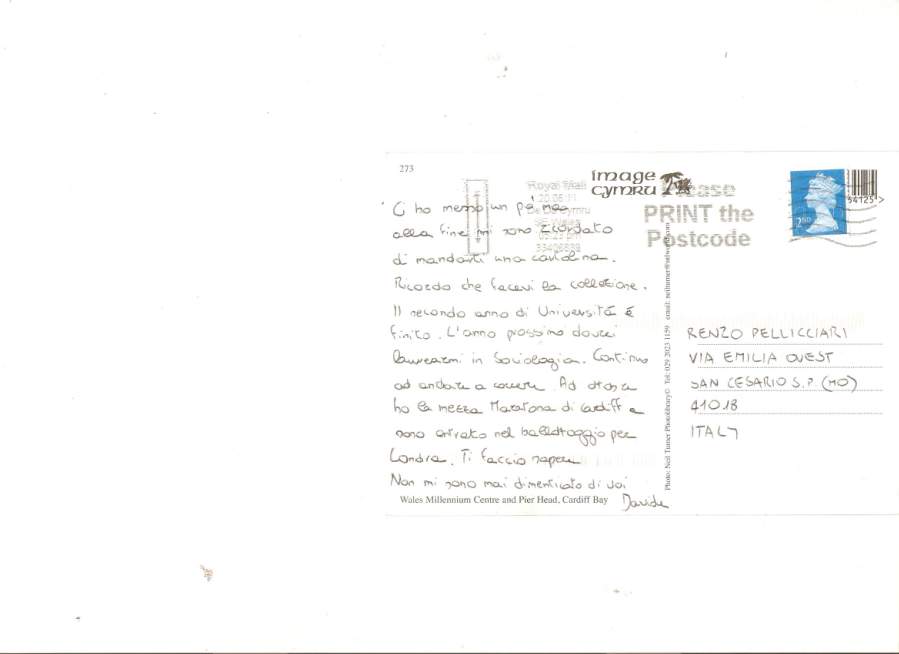 273
image
cymru
Royal Mail
20.06.11
Please
PRINT the
Postcode
54125
Ci ho messo un pò ma
alla fine mi sono ricordato
di mandarti una cartolina.
Ricordo che facevi la collezione.
Il secondo anno di Università è
finito. L'anno prossimo dovrei
laurearmi in Sociologia. Continuo
ad andare a correre. Ad ottobre
ho la mezza Maratona di Cardiff e
sono entrato nel ballottaggio per
Londra. Ti faccio sapere
Non mi sono mai dimenticato di voi
Davide
Wales Millennium Centre and Pier Head, Cardiff Bay
Photo: Neil Turner Photolibrary© Tel: 029 2023 1159 email:
RENZO PELLICCIARI
VIA EMILIA OVEST
SAN CESARIO S.P. (MO)
41018
ITALY